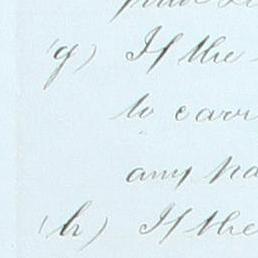 (g) If the
to carr
any ha
(h) If the